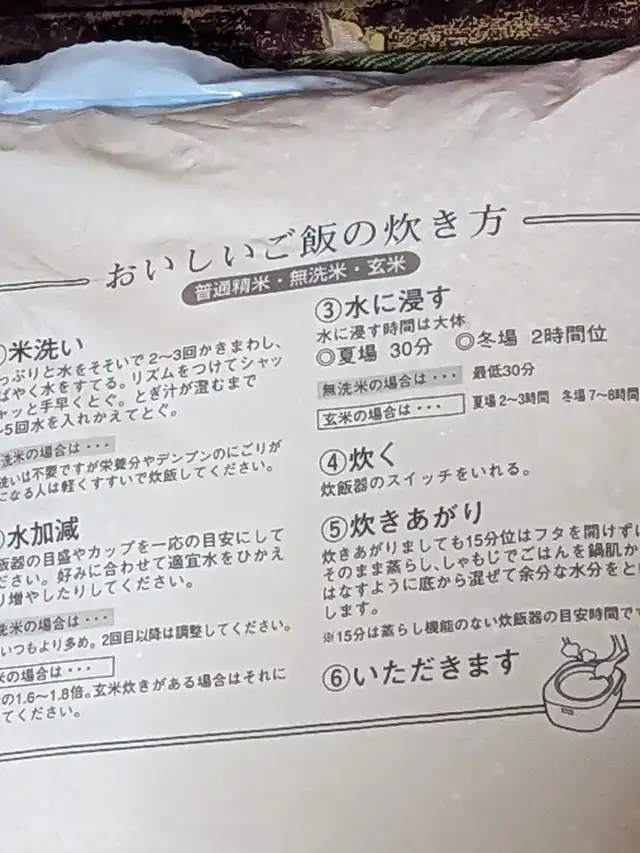 おいしいご飯の炊き方
普通精米・無洗米・玄米
米洗い
っぷりと水をそそいで2〜3回かきまわし、
ばやく水をすてる。リズムをつけてシャッ
ャッと手早くとぐ。とぎ汁が澄むまで
〜5回水を入れかえてとぐ。
洗米の場合は・・・
洗いは不要ですが栄養分やデンプンのにごりが
になる人は軽くすすいで炊飯してください。
水加減
飯器の目盛やカップを一応の目安にして
ださい。好みに合わせて適宜水をひかえ
り増やしたりしてください。
洗米の場合は・・・
いつもより多め。2回目以降は調整してください。
米の場合は・・・
の1.6〜1.8倍。玄米炊きがある場合はそれに
てください。
③水に浸す
水に浸す時間は大体
◎夏場 30分 ◎冬場 2時間位
無洗米の場合は・・・ 最低30分
玄米の場合は・・・ 夏場2〜3時間 冬場7〜8時間
④炊く
炊飯器のスイッチをいれる。
⑤炊きあがり
炊きあがりましても15分位はフタを開けずに
そのまま蒸らし、しゃもじでごはんを鍋肌か
はなすように底から混ぜて余分な水分をと
します。
※15分は蒸らし機能のない炊飯器の目安時間です
⑥いただきます